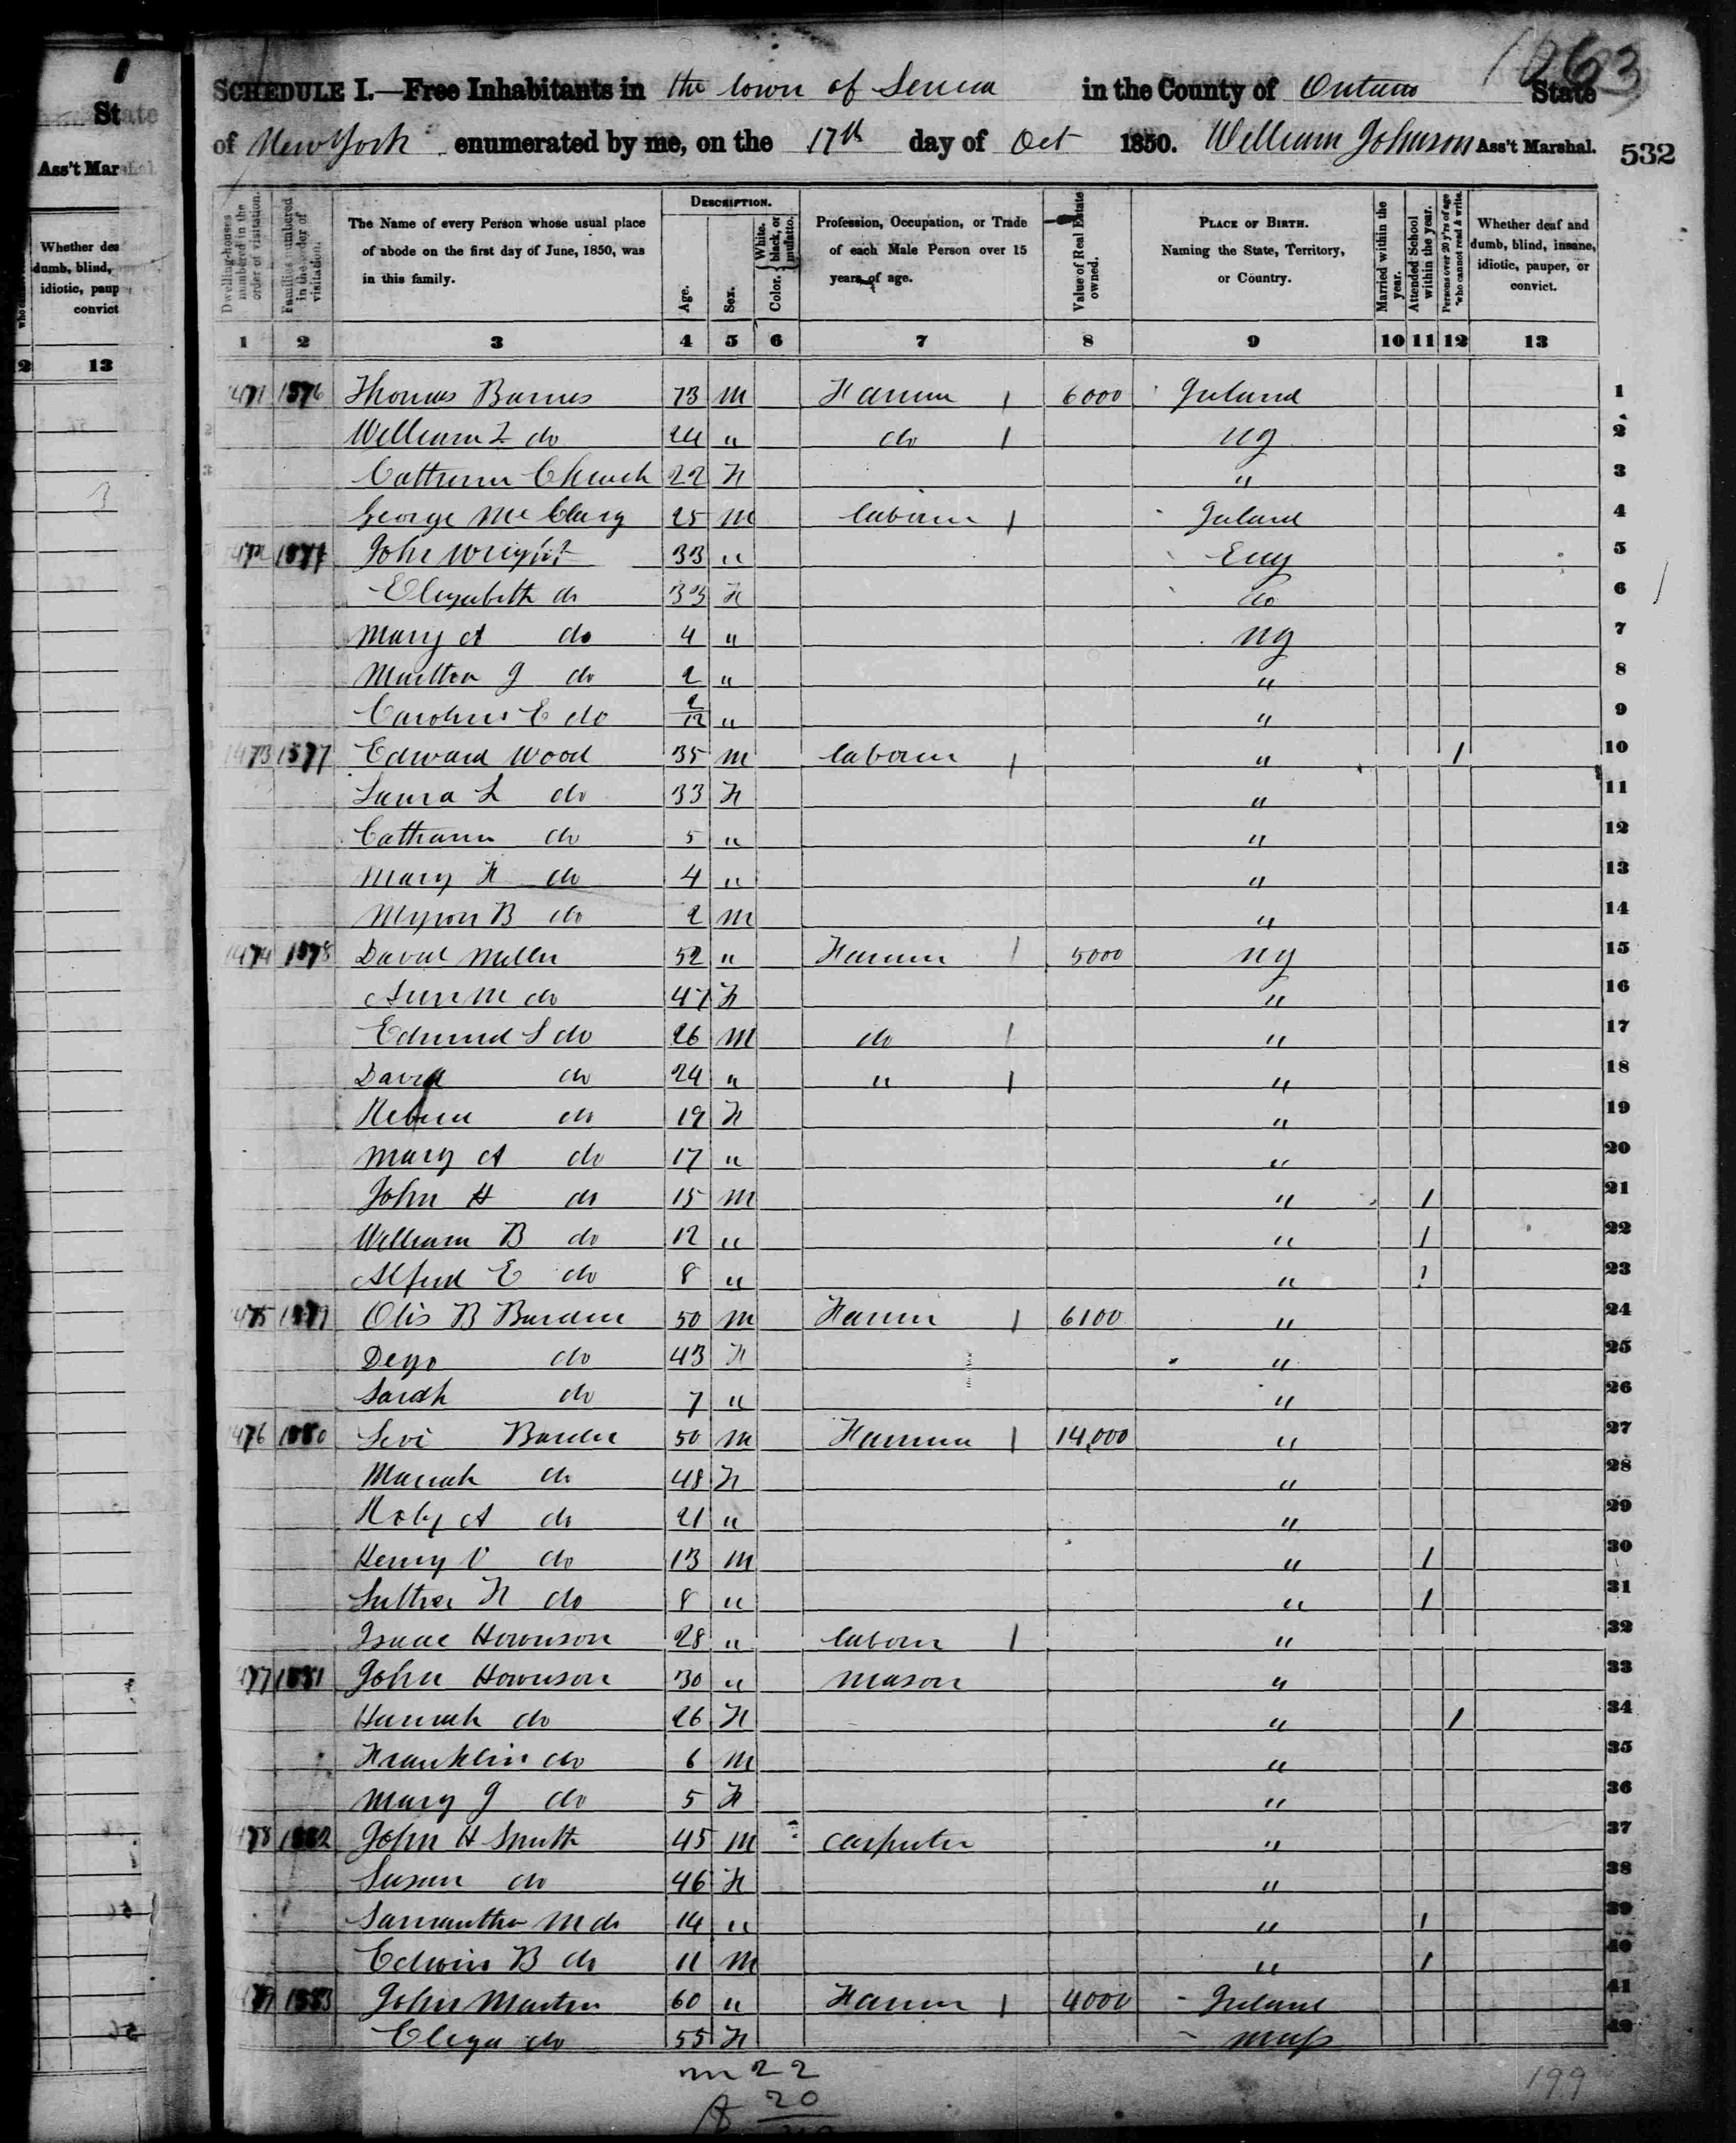 1
State
Ass't Mar
Whether dea
dumb, blind,
idiotic, paup
convict
2 13
1063
SCHEDULE I.—Free Inhabitants in the town of Seneca in the County of Ontario State
of New York enumerated by me, on the 17th day of Oct 1850. William Johnson Ass't Marshal. 532
Dwelling-houses numbered in the order of visitation.
Families numbered in the order of visitation.
The Name of every Person whose usual place of abode on the first day of June, 1850, was in this family.
DESCRIPTION.
Age.
Sex.
Color. { White, black, or mulatto.
Profession, Occupation, or Trade of each Male Person over 15 years of age.
Value of Real Estate owned.
PLACE OF BIRTH. Naming the State, Territory, or Country.
Married within the year.
Attended School within the year.
Persons over 20 y'rs of age who cannot read & write.
Whether deaf and dumb, blind, insane, idiotic, pauper, or convict.
1 2 3 4 5 6 7 8 9 10 11 12 13
471 1576 Thomas Barnes 73 M Farmer 1 6000 Ireland 1
William do 24 " do 1 NY 2
Catherine Church 22 F " 3
George McClary 25 M laborer 1 Ireland 4
472 1577 John Wright 33 " Eng 5
Elizabeth do 33 F do 6
Mary A do 4 " NY 7
Martha J do 2 " " 8
Caroline E do 2/12 " " 9
1473 1577 Edward Wood 35 M laborer 1 " 1 10
Laura L do 33 F " 11
Catharine do 5 " " 12
Mary F do 4 " " 13
Myron B do 2 M " 14
1474 1578 David Miller 52 " Farmer 1 5000 NY 15
Ann M do 47 F " 16
Edmund S do 26 M do 1 " 17
David do 24 " " 1 " 18
Rebecca do 19 F " 19
Mary A do 17 " " 20
John H do 15 M " 1 21
William B do 12 " " 1 22
Alfred E do 8 " " 1 23
475 1579 Otis B Barden 50 M Farmer 1 6100 " 24
do 43 F " 25
Sarah do 7 " " 26
1476 1580 Levi Barden 50 M Farmer 1 14,000 " 27
Mariah do 48 F " 28
Roby A do 21 " " 29
Henry V do 13 M " 1 30
Luther F do 8 " " 1 31
Isaac Hownson 28 " laborer 1 " 32
477 1581 John Hownson 30 " Mason " 33
Hannah do 26 F " 1 34
Franklin do 6 M " 35
Mary J do 5 F " 36
478 1582 John H Smith 45 M carpenter " 37
Susan do 46 F " 38
Samantha M do 14 " " 1 39
Edwin B do 11 M " 1 40
479 1583 John Martin 60 " Farmer 1 4000 Ireland 41
Eliza do 55 F Mass 42
m 22
f 20
199